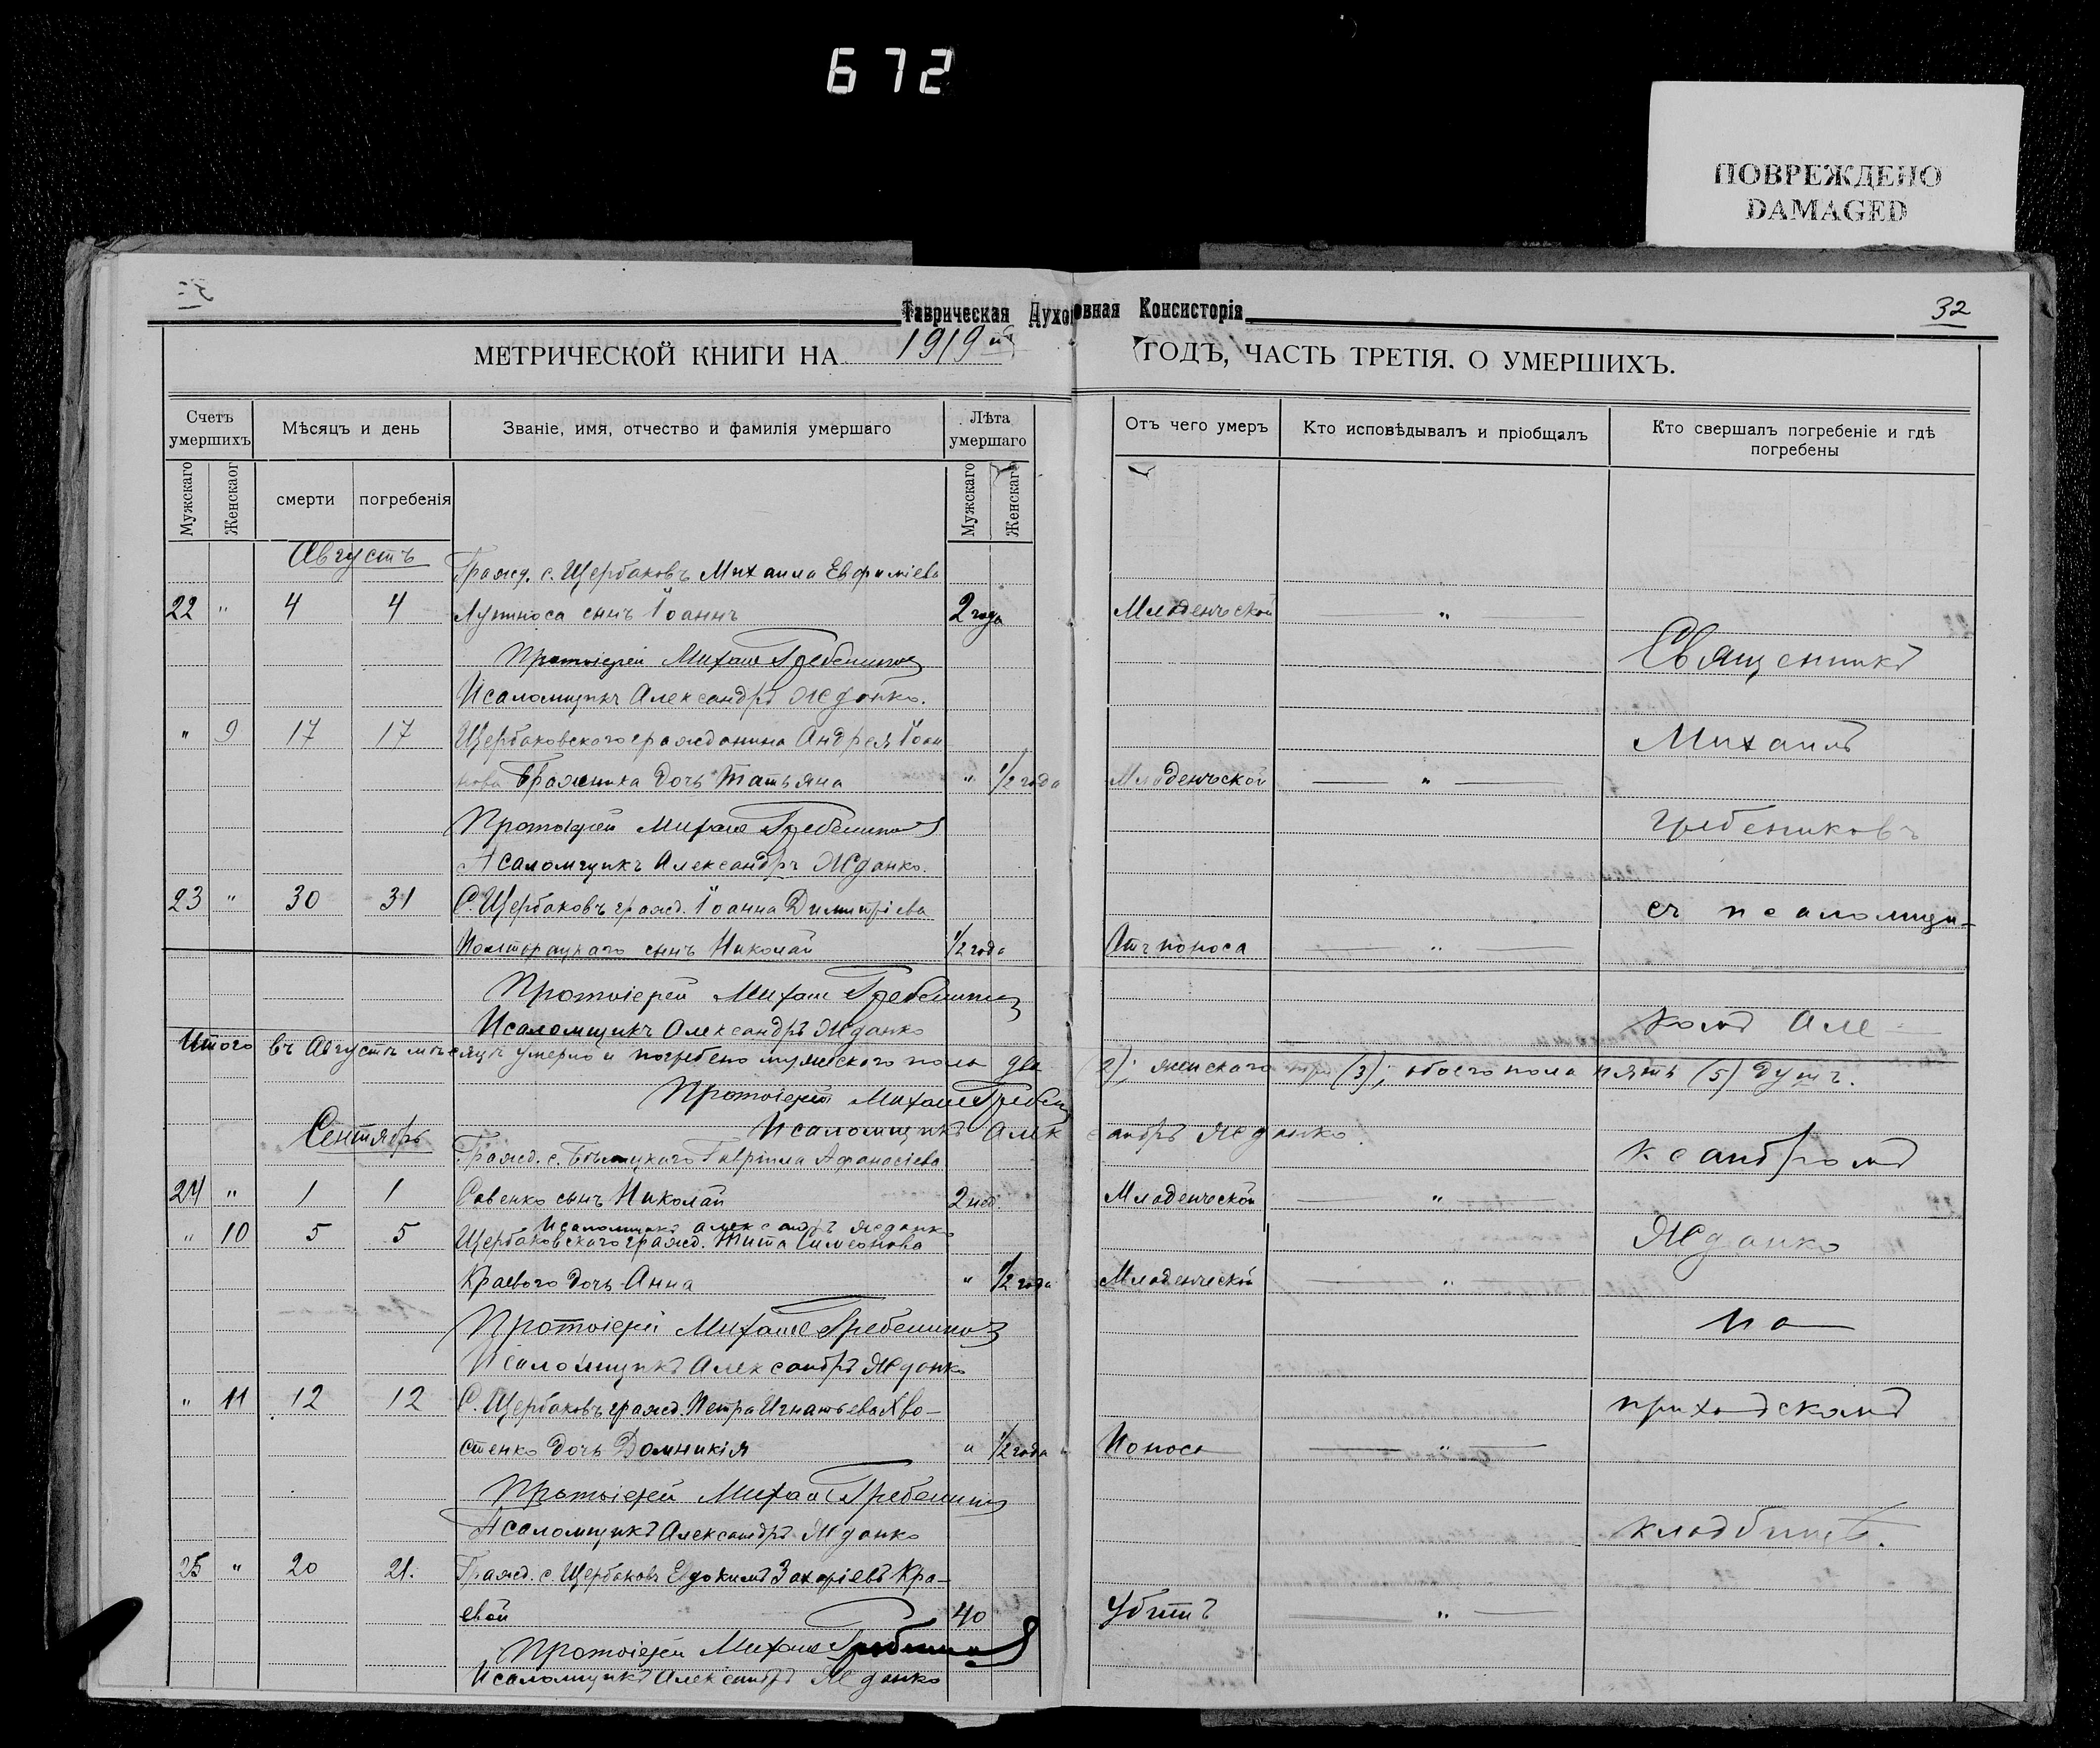 672
ПОВРЕЖДЕНО
DAMAGED
32
Таврическая Духовная Консисторія
МЕТРИЧЕСКОЙ КНИГИ НА 1919й ГОДЪ, ЧАСТЬ ТРЕТІЯ. О УМЕРШИХЪ.
Счетъ умершихъ
Мѣсяцъ и день
Званіе, имя, отчество и фамилія умершаго
Лѣта умершаго
Отъ чего умеръ
Кто исповѣдывалъ и пріобщалъ
Кто свершалъ погребеніе и гдѣ погребены
Мужскаго
Женскаог
смерти
погребенія
Мужскаго
Женскаг
Августъ
Гражд. с. Щербаковъ Михаила Евфиміева
22 " 4 4 сынъ Іоаннъ 2 года Младенческой "
Протоіерей Михаилъ Гребениковъ
Священникъ
Псаломщикъ Александръ Жданко.
" 9 17 17 Щербаковского гражданина Андрея Іоан
Михаилъ
нова Бражника дочь Татьяна " 1/2 года Младенческой "
Протоіерей Михаилъ Гребениковъ
Гребениковъ
Псаломщикъ Александръ Жданко.
23 " 30 31 С. Щербаковъ гражд. Іоанна Димитріева
съ псаломщи-
сынъ Николай 1/2 года Отъ поноса "
Протоіерей Михаилъ Гребениковъ
Псаломщикъ Александръ Жданко
комъ Але-
Итого въ Августѣ мѣсяцѣ умерло и погребено мужеского пола два 2); женского три (3); обоего пола пять (5) душъ.
Протоіерей Михаилъ Гребен
Псаломщикъ Александръ Жданко.
Сентябрь
ксандромъ
Гражд. с. Гавріила Афанасіева
24 " 1 1 Савенко сынъ Николай 2 нед. Младенческой "
Псаломщикъ Александръ Жданко
" 10 5 5 Щербаковского гражд. Тита Симеонова
Жданко
Краевого дочь Анна " 1/2 года Младенческой "
Протоіерей Михаилъ Гребениковъ
на
Псаломщикъ Александръ Жданко
" 11 12 12 С. Щербаковъ гражд. Петра Игнатьева Хво-
приходскомъ
стенко дочь Домникія " 1/2 года Поноса "
Протоіерей Михаилъ Гребениковъ
Псаломщикъ Александръ Жданко
кладбищѣ.
25 " 20 21. Гражд. с. Щербаковъ Евдокимъ Захаріевъ Кра-
евой 40 Убитъ "
Протоіерей Михаилъ Гребениковъ
Псаломщикъ Александръ Жданко